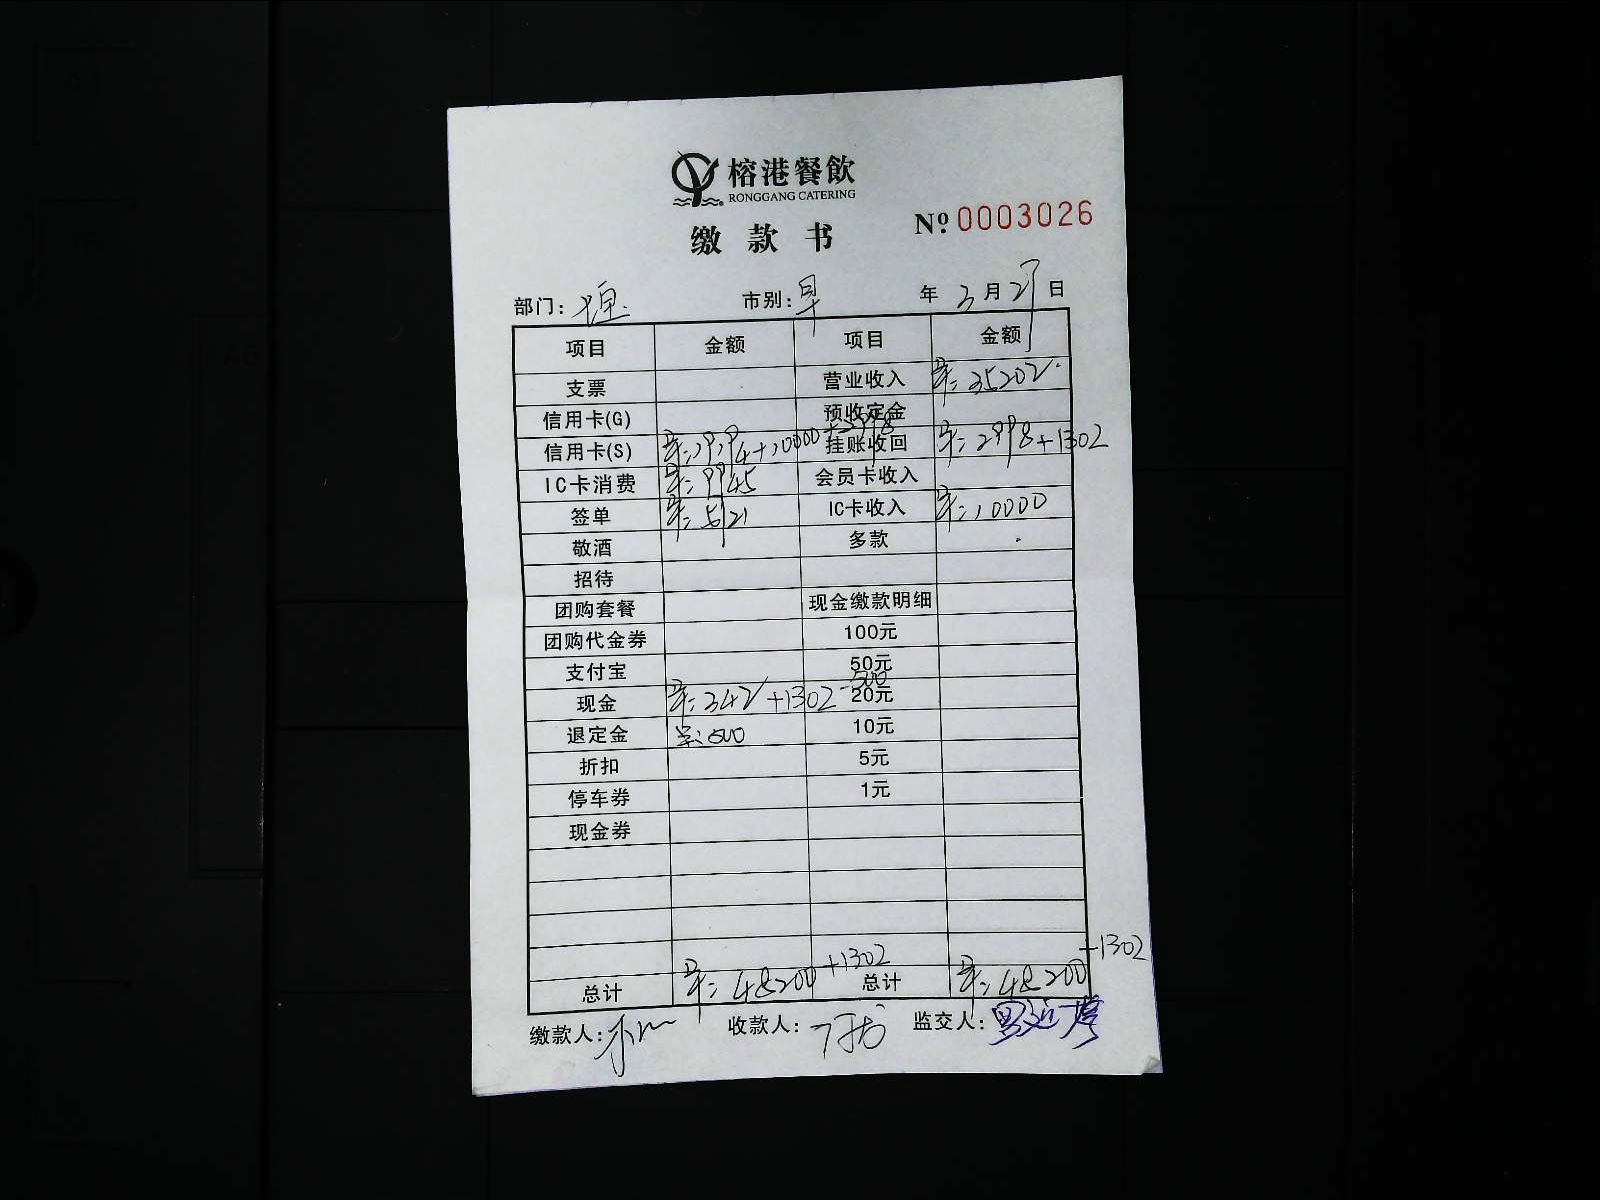 榕港餐飲
RONGGANG CATERING
缴款书
№ 0003026
部门: 市别:早 年 3月27日
项目 金额 项目 金额
支票 营业收入 早:35202
信用卡(G) 预收定金
信用卡(S) 早:19194+10000+2998 挂账收回 早:2998+1302
IC卡消费 早:9945 会员卡收入
签单 早:5121 IC卡收入 早:10000
敬酒 多款
招待
团购套餐 现金缴款明细
团购代金券 100元
支付宝 50元
现金 早:342+1302-500 20元
退定金 早:500 10元
折扣 5元
停车券 1元
现金券
总计 早:48200+1302 总计 早:48200+1302
缴款人: 收款人: 监交人: